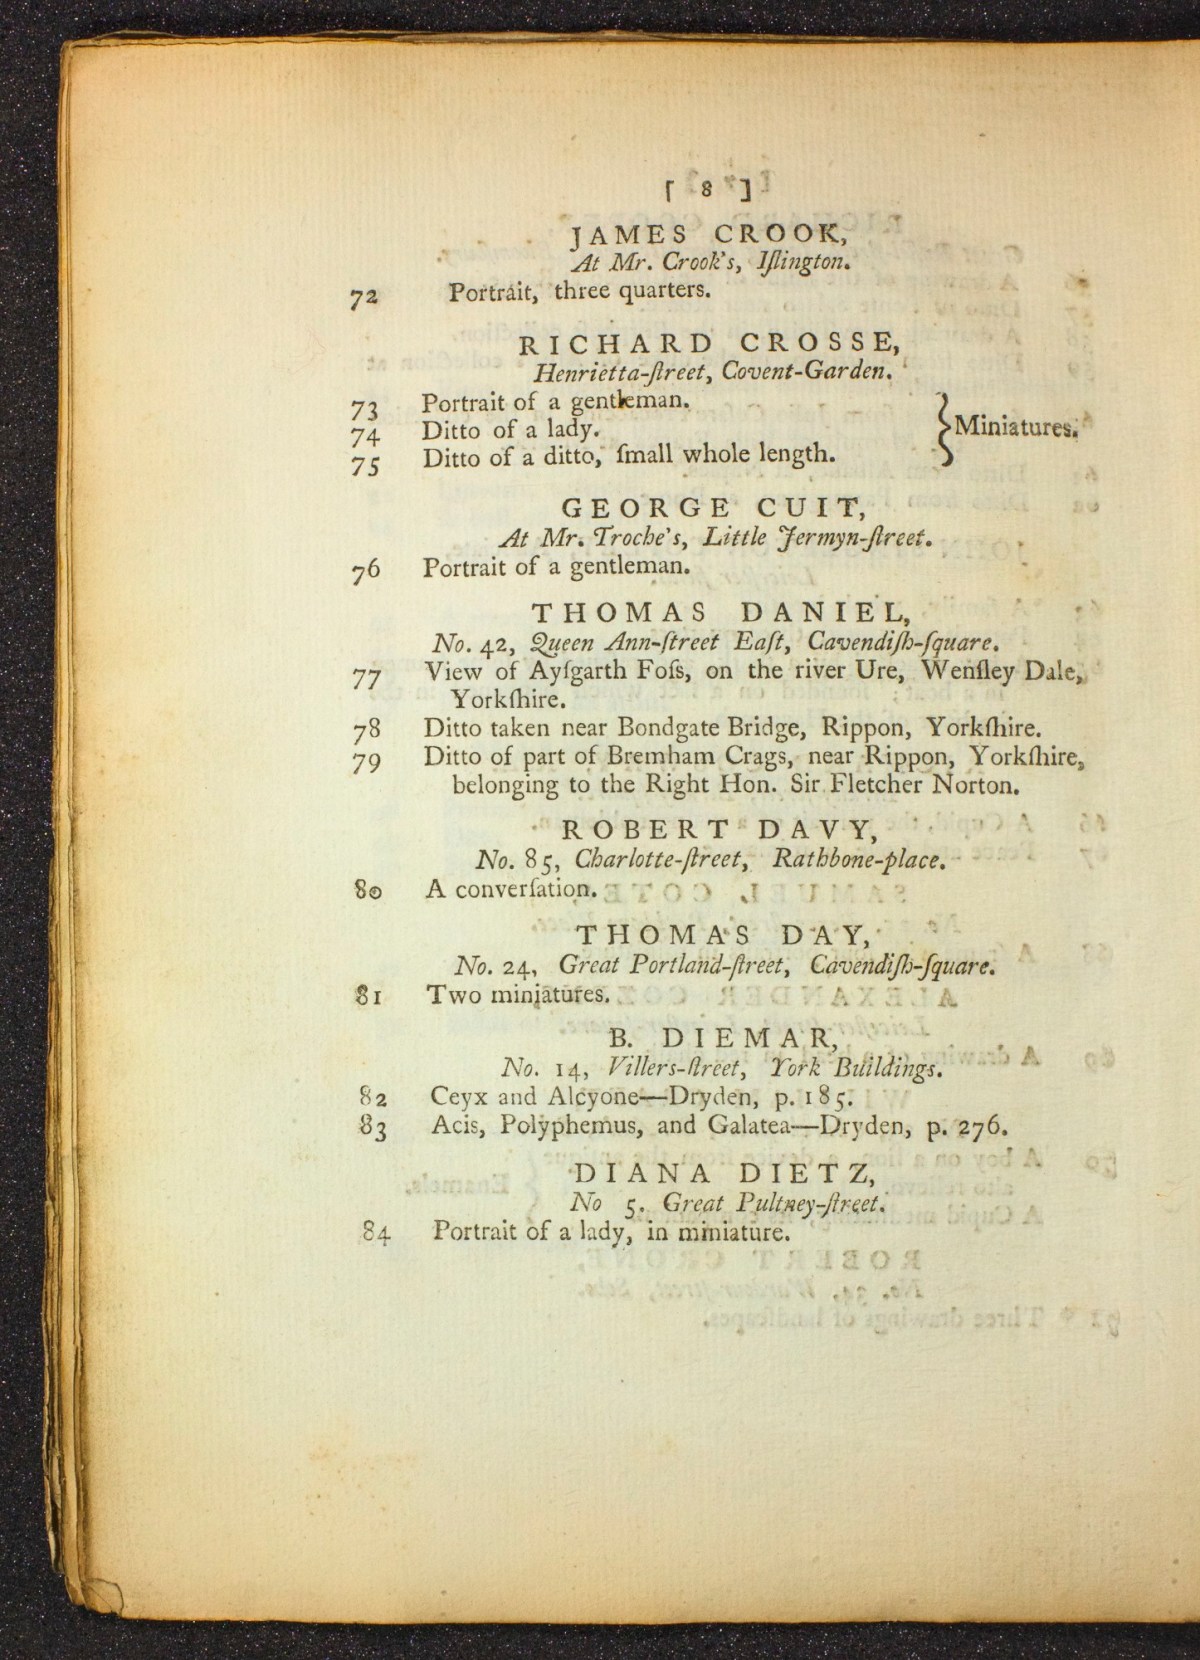 [ 8 ]
JAMES CROOK,
At Mr. Crook's, Iſlington.
72 Portrait, three quarters.
RICHARD CROSSE,
Henrietta-ſtreet, Covent-Garden.
73 Portrait of a gentleman.
74 Ditto of a lady. } Miniatures.
75 Ditto of a ditto, ſmall whole length.
GEORGE CUIT,
At Mr. Troche's, Little Jermyn-ſtreet.
76 Portrait of a gentleman.
THOMAS DANIEL,
No. 42, Queen Ann-ſtreet Eaſt, Cavendiſh-ſquare.
77 View of Ayſgarth Foſs, on the river Ure, Wenſley Dale,
Yorkſhire.
78 Ditto taken near Bondgate Bridge, Rippon, Yorkſhire.
79 Ditto of part of Bremham Crags, near Rippon, Yorkſhire,
belonging to the Right Hon. Sir Fletcher Norton.
ROBERT DAVY,
No. 85, Charlotte-ſtreet, Rathbone-place.
80 A converſation.
THOMAS DAY,
No. 24, Great Portland-ſtreet, Cavendiſh-ſquare.
81 Two miniatures.
B. DIEMAR,
No. 14, Villers-ſtreet, York Buildings.
82 Ceyx and Alcyone—Dryden, p. 185.
83 Acis, Polyphemus, and Galatea—Dryden, p. 276.
DIANA DIETZ,
No 5. Great Pultney-ſtreet.
84 Portrait of a lady, in miniature.